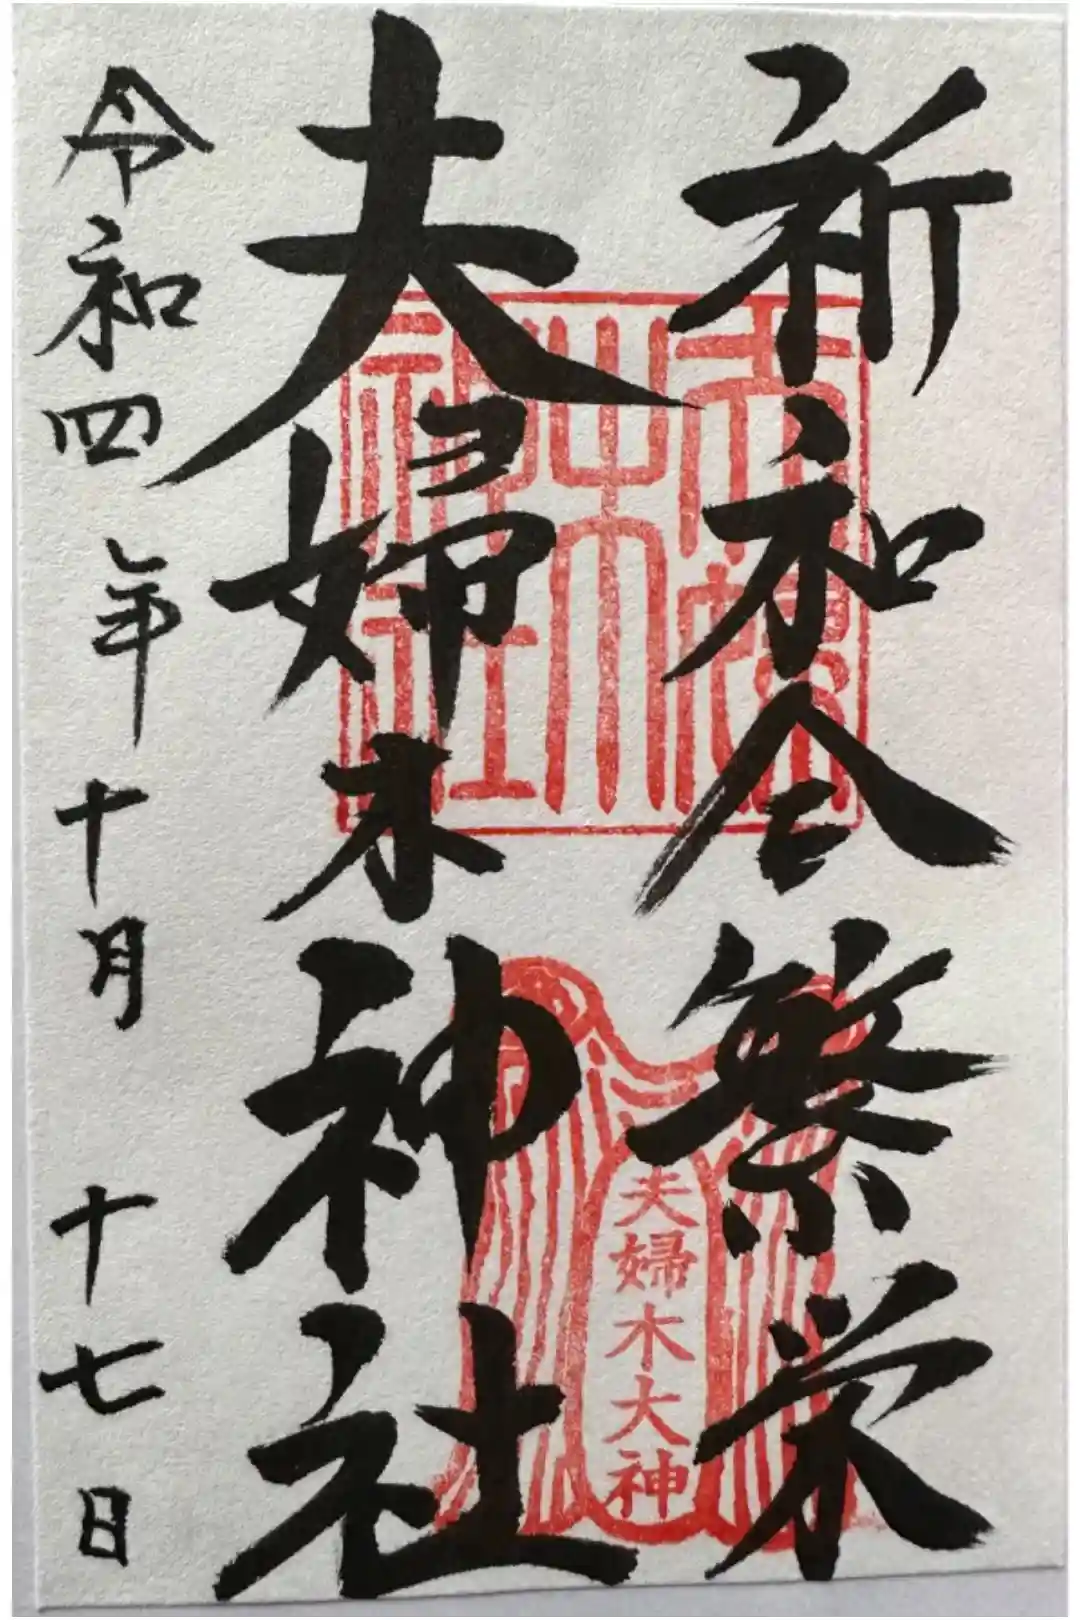 祈和合繁栄
夫婦木神社
令和四年十月十七日
夫婦木神社
夫婦木大神